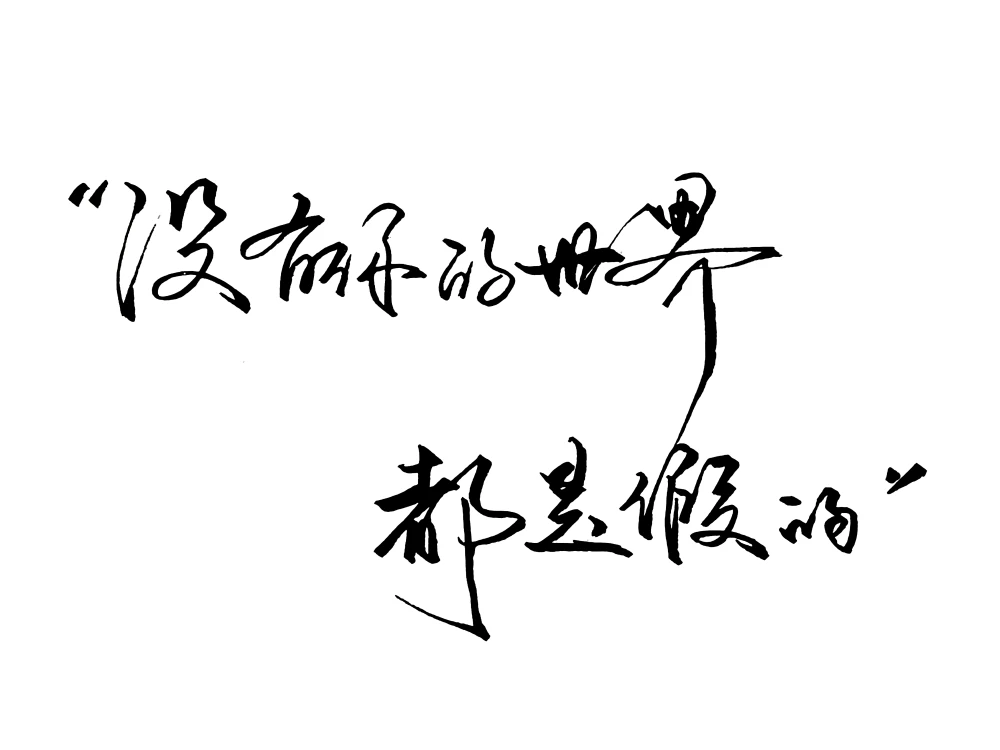 “没有你的世界
都是假的”